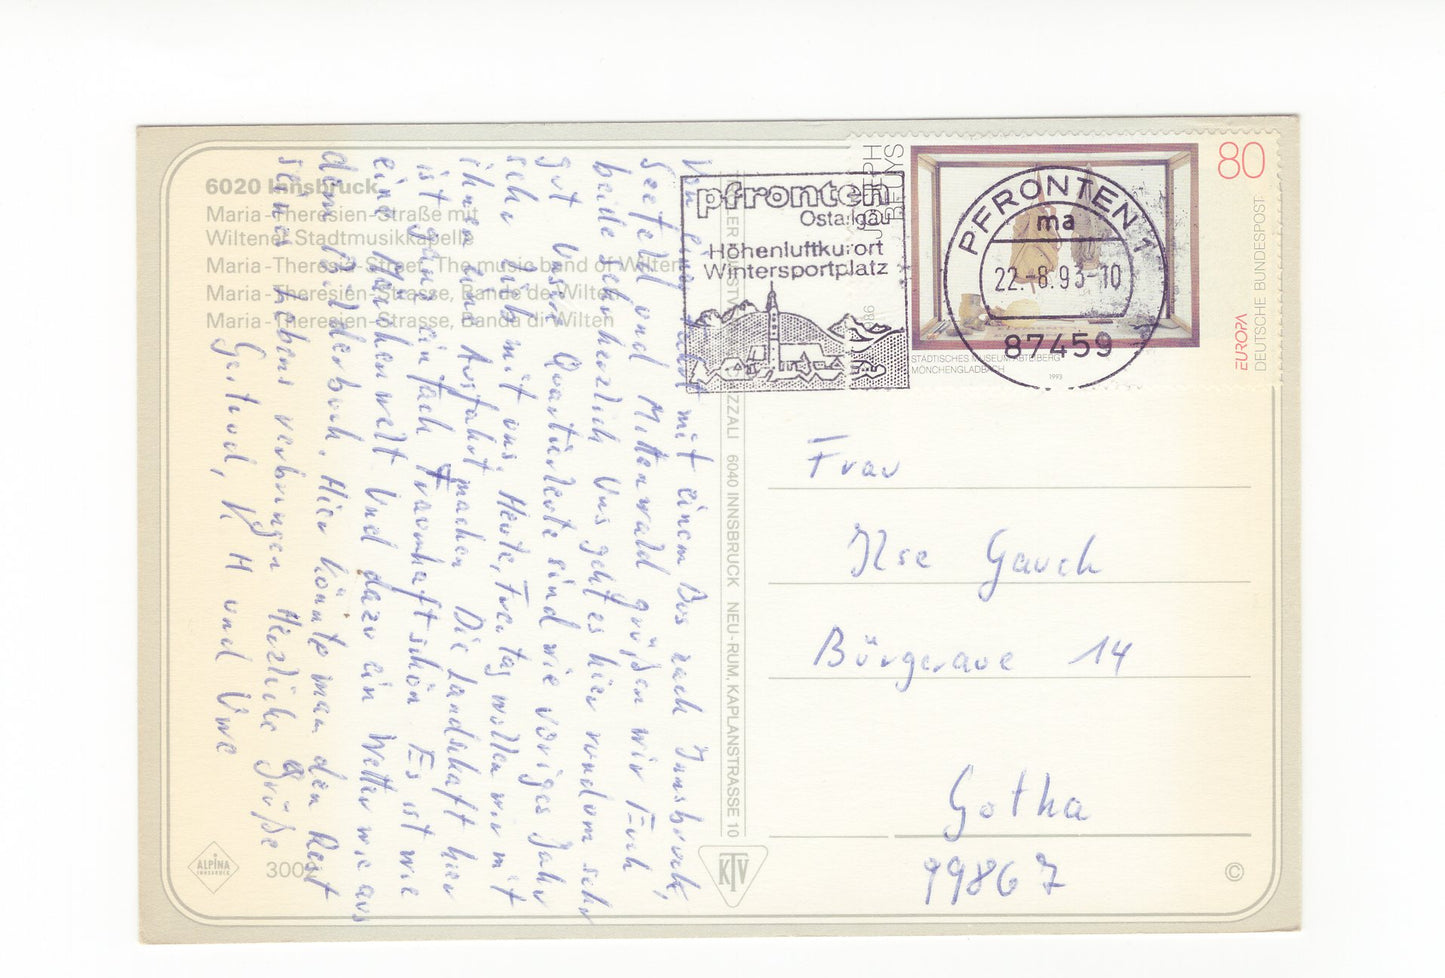 6020 Innsbruck
Maria-Theresien-Straße mit
Wiltener Stadtmusikkapelle
Maria-Theresia-Street, The music band of Wilten
Maria-Theresien-Strasse, Bande de Wilten
Maria-Theresien-Strasse, Banda di Wilten
mit einem Bus nach Innsbruck,
Seefeld und Mittenwald grüßen wir Euch
beide sehr herzlich. Uns geht es hier rundum sehr
gut. Unsere Quartierleute sind wie voriges Jahr
sehr lieb mit uns. Heute, Freitag wollen wir mit
ihnen eine Ausfahrt machen. Die Landschaft hier
ist ganz einfach traumhaft schön. Es ist wie
eine Märchenwelt. Und dazu ein Wetter wie aus
dem Bilderbuch. Hier könnte man den Rest
seines Lebens verbringen. Herzliche Grüße
Gertrud, K H und Uwe
ALPINA
INNSBRUCK
6040 INNSBRUCK NEU-RUM, KAPLANSTRASSE 10
KTV
pfronten
Ostallgäu
Höhenluftkurort
Wintersportplatz
JOSEPH
BEUYS
80
EUROPA
DEUTSCHE BUNDESPOST
STÄDTISCHES MUSEUM ABTEIBERG
MÖNCHENGLADBACH
1993
PFRONTEN 1
ma
22.-8.93-10
87459
Frau
Ilse Gauch
Bürgeraue 14
Gotha
99867
©